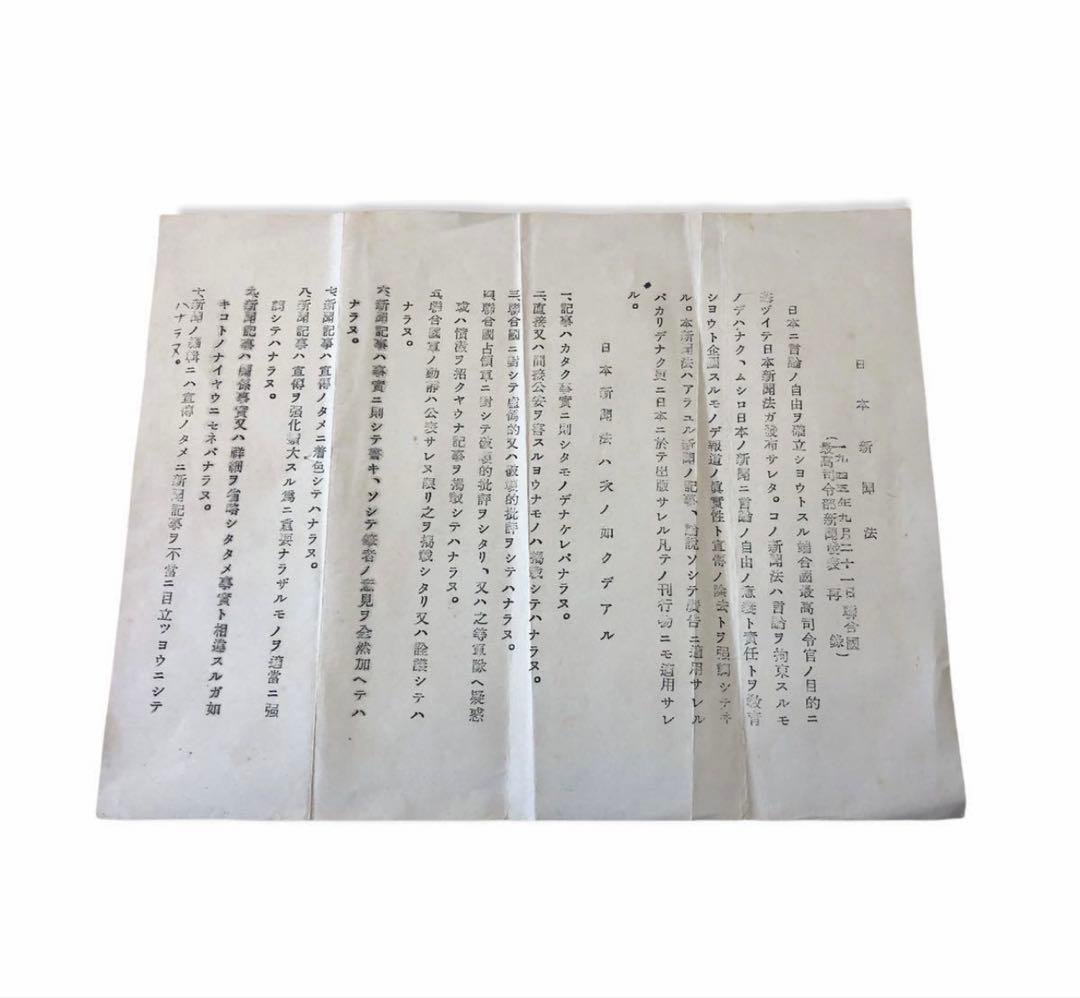 日本新聞法
（一九四五年九月二十一日聯合國
最高司令部新聞發表 再錄）
日本ニ言論ノ自由ヲ確立シヨウトスル聯合國最高司令官ノ目的ニ
基ヅイテ日本新聞法ガ發布サレタ。コノ新聞法ハ言論ヲ拘束スルモ
ノデハナク、ムシロ日本ノ新聞ニ言論ノ自由ノ意義ト責任トヲ敎育
シヨウト企圖スルモノデ報道ノ眞實性ト宣傳ノ除去トヲ强調シテヰ
ル。本新聞法ハアラユル新聞ノ記事、論說ソシテ廣告ニ適用サレル
バカリデナク更ニ日本ニ於テ出版サレル凡テノ刊行物ニモ適用サレ
ル。
日本新聞法ハ次ノ如クデアル
一、記事ハカタク事實ニ則シタモノデナケレバナラヌ。
二、直接又ハ間接公安ヲ害スルヨウナモノハ揭載シテハナラヌ。
三、聯合國ニ對シテ虛僞的又ハ破壞的批評ヲシテハナラヌ。
四、聯合國占領軍ニ對シテ破壞的批評ヲシタリ、又ハ之等軍隊ヘ疑惑
或ハ憤激ヲ招クヤウナ記事ヲ揭載シテハナラヌ。
五、聯合國軍ノ動靜ハ公表サレヌ限リ之ヲ揭載シタリ又ハ論議シテハ
ナラヌ。
六、新聞記事ハ事實ニ則シテ書キ、ソシテ筆者ノ意見ヲ全然加ヘテハ
ナラヌ。
七、新聞記事ハ宣傳ノタメニ着色シテハナラヌ。
八、新聞記事ハ宣傳ヲ强化擴大スル爲ニ重要ナラザルモノヲ過當ニ强
調シテハナラヌ。
九、新聞記事ハ關係事實又ハ詳細ヲ省略シタタメ事實ト相違スルガ如
キコトノナイヤウニセネバナラヌ。
十、新聞ノ編輯ニハ宣傳ノタメニ新聞記事ヲ不當ニ目立ツヨウニシテ
ハナラヌ。